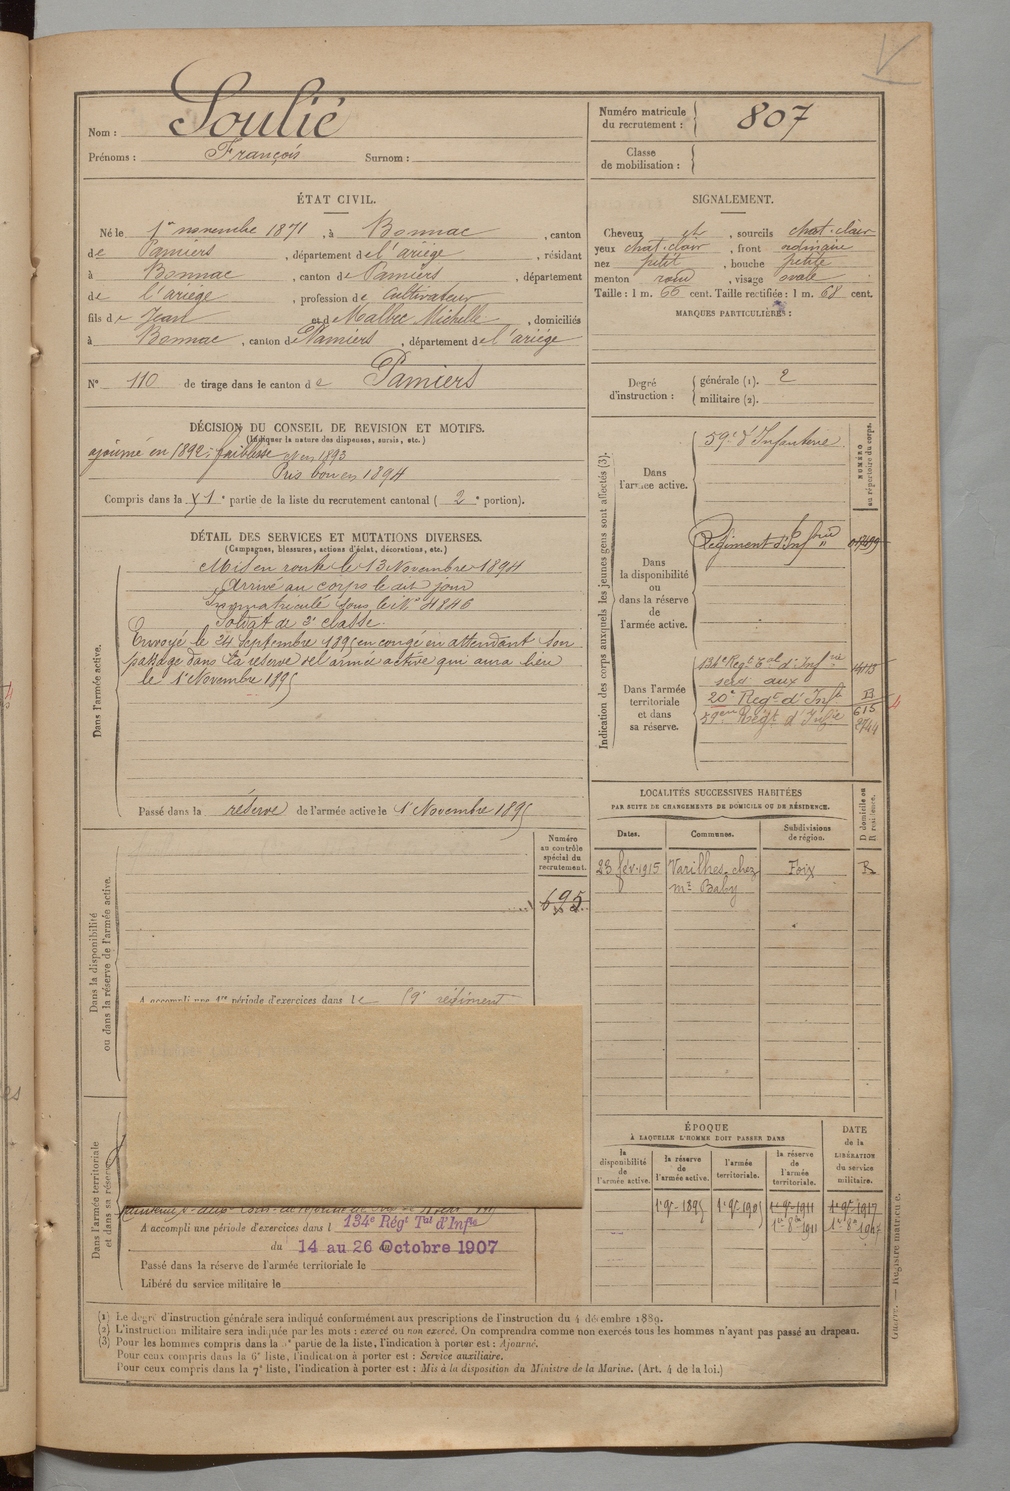 Nom : Soulié
Prénoms : François Surnom :
Numéro matricule du recrutement : 807
Classe de mobilisation :
ÉTAT CIVIL.
Né le 1er novembre 1871, à Bonnac, canton
de Pamiers, département de l'ariège, résidant
à Bonnac, canton de Pamiers, département
de l'ariège, profession de cultivateur
fils de Jean et de Malbec Michelle, domiciliés
à Bonnac, canton de Pamiers, département de l'ariège
N° 110 de tirage dans le canton de Pamiers
SIGNALEMENT.
Cheveux , sourcils chat. clair
yeux chat. clair, front ordinaire
nez petit, bouche petite
menton rond, visage ovale
Taille : 1 m. 66 cent. Taille rectifiée : 1 m. 68 cent.
MARQUES PARTICULIÈRES :
Degré d'instruction : générale (1). 2
militaire (2).
DÉCISION DU CONSEIL DE REVISION ET MOTIFS.
(Indiquer la nature des dispenses, sursis, etc.)
ajourné en 1892, faiblesse et en 1893
Pris bon en 1894
Compris dans la 1e partie de la liste du recrutement cantonal ( 2e portion).
DÉTAIL DES SERVICES ET MUTATIONS DIVERSES.
(Campagnes, blessures, actions d'éclat, décorations, etc.)
Dans l'armée active.
Mis en route le 13 Novembre 1894
Arrivé au corps le dit jour
Immatriculé sous le N° 4846
Soldat de 2e classe.
Envoyé le 24 Septembre 1895 en congé en attendant son
passage dans la réserve de l'armée active qui aura lieu
le 1 Novembre 1895
Passé dans la réserve de l'armée active le 1 Novembre 1895
Indication des corps auxquels les jeunes gens sont affectés (3).
NUMÉRO au répertoire du corps.
Dans l'armée active.
59e d'Infanterie.
Dans la disponibilité ou dans la réserve de l'armée active.
Régiment d'Infrie
Dans l'armée territoriale et dans sa réserve.
134e Regt Tal d'Infrie
20e Regt d'Infie
59eme Regt d'Infie
615
2744
LOCALITÉS SUCCESSIVES HABITÉES
PAR SUITE DE CHANGEMENTS DE DOMICILE OU DE RÉSIDENCE.
D domicile ou R résidence.
Dates. Communes. Subdivisions de région.
23 fév. 1915 Varilhes, chez Foix R
Mr Baby
Dans la disponibilité ou dans la réserve de l'armée active.
Numéro au contrôle spécial du recrutement.
695
A accompli une 1re période d'exercices dans le 59e régiment
Dans l'armée territoriale et dans sa réserve.
A accompli une période d'exercices dans l 134e Régt Tal d'Infie
du 14 au 26 Octobre 1907
Passé dans la réserve de l'armée territoriale le
Libéré du service militaire le
ÉPOQUE
À LAQUELLE L'HOMME DOIT PASSER DANS
DATE de la LIBÉRATION du service militaire.
la disponibilité de l'armée active.
la réserve de l'armée active.
l'armée territoriale.
la réserve de l'armée territoriale.
1er 9bre 1895 1er 9bre 1905 1er 9bre 1911 1er 9bre 1917
1er 8bre 1911
(1) Le degré d'instruction générale sera indiqué conformément aux prescriptions de l'instruction du 4 décembre 1889.
(2) L'instruction militaire sera indiquée par les mots : exercé ou non exercé. On comprendra comme non exercés tous les hommes n'ayant pas passé au drapeau.
(3) Pour les hommes compris dans la 5e partie de la liste, l'indication à porter est : Ajourné.
Pour ceux compris dans la 6e liste, l'indication à porter est : Service auxiliaire.
Pour ceux compris dans la 7e liste, l'indication à porter est : Mis à la disposition du Ministre de la Marine. (Art. 4 de la loi.)